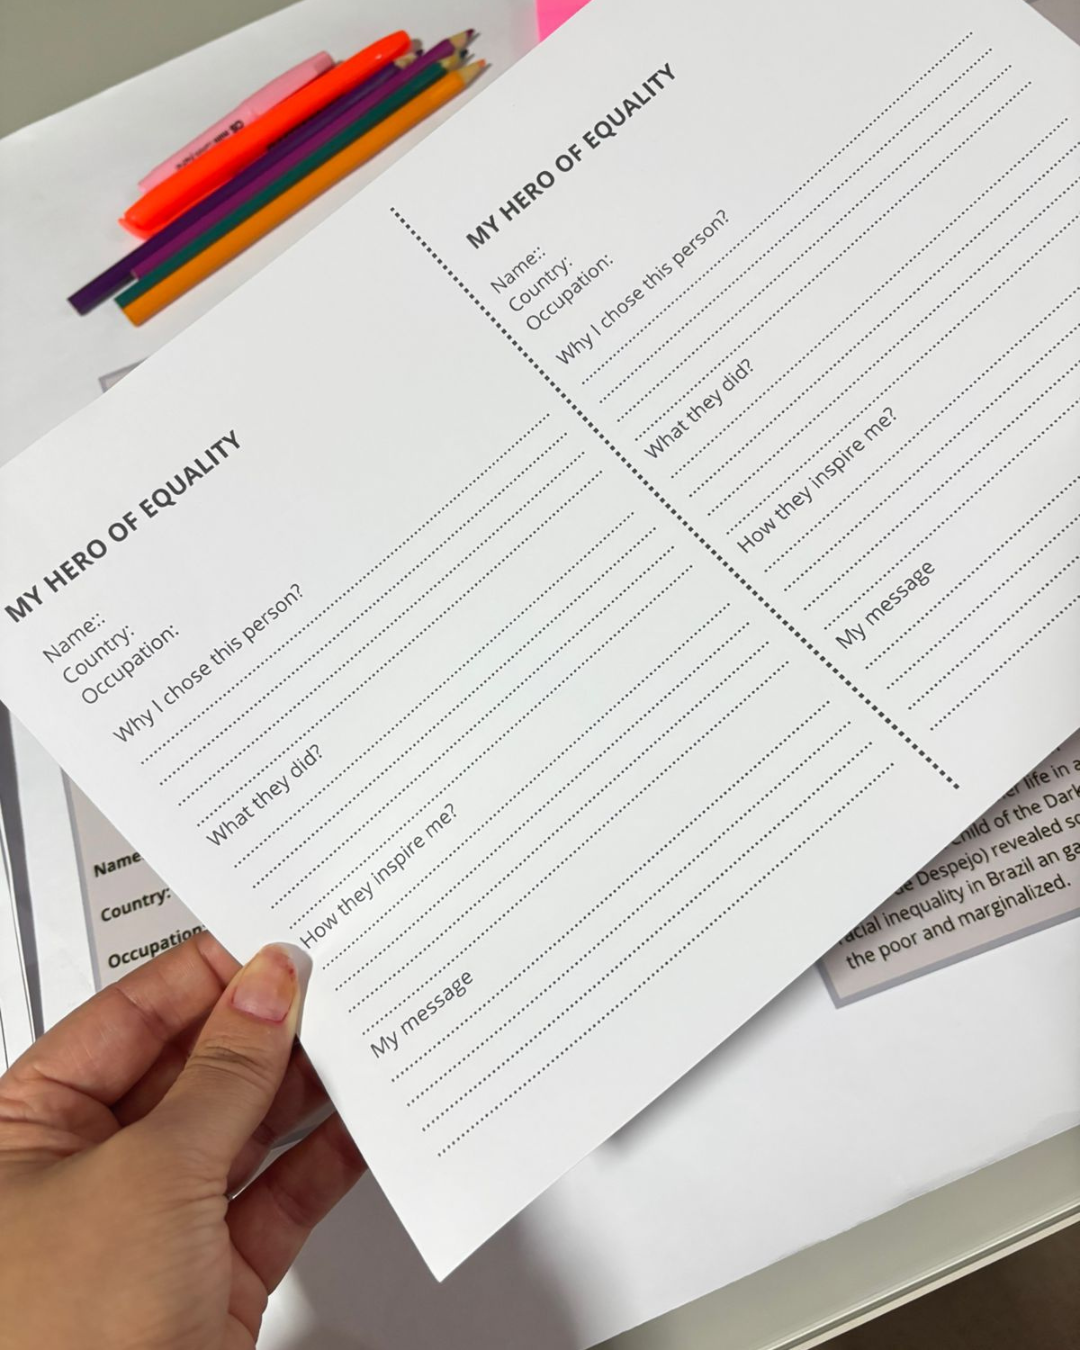 MY HERO OF EQUALITY
Name::
Country:
Occupation:
Why I chose this person?
What they did?
How they inspire me?
My message
MY HERO OF EQUALITY
Name::
Country:
Occupation:
Why I chose this person?
What they did?
How they inspire me?
My message
Name
Country:
Occupation:
life in a
child of the Dark
de Despejo) revealed so
racial inequality in Brazil an ga
the poor and marginalized.